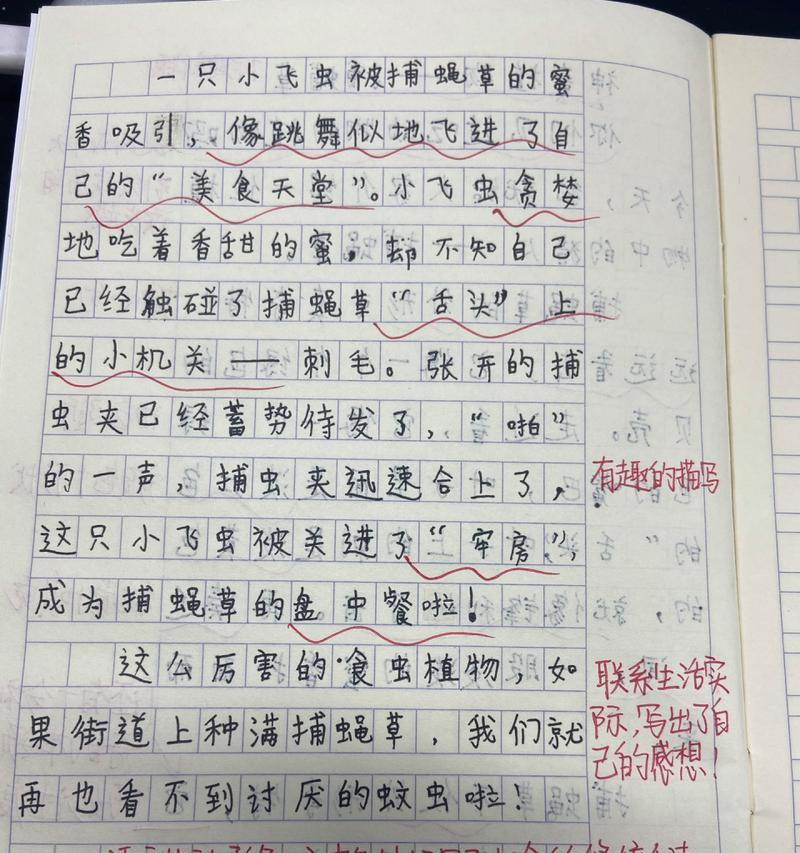 一只小飞虫被捕蝇草的蜜
香吸引，像跳舞似地飞进了自
己的“美食天堂”。小飞虫贪婪
地吃着香甜的蜜，却不知自己
已经触碰了捕蝇草“舌头”上
的小机关——刺毛。张开的捕
虫夹已经蓄势待发了，“啪”
的一声，捕虫夹迅速合上了，
有趣的描写
这只小飞虫被关进了“牢房”，
成为捕蝇草的盘中餐啦！
这么厉害的食虫植物，如
果街道上种满捕蝇草，我们就
再也看不到讨厌的蚊虫啦！
联系生活实
际，写出了自
己的感想！